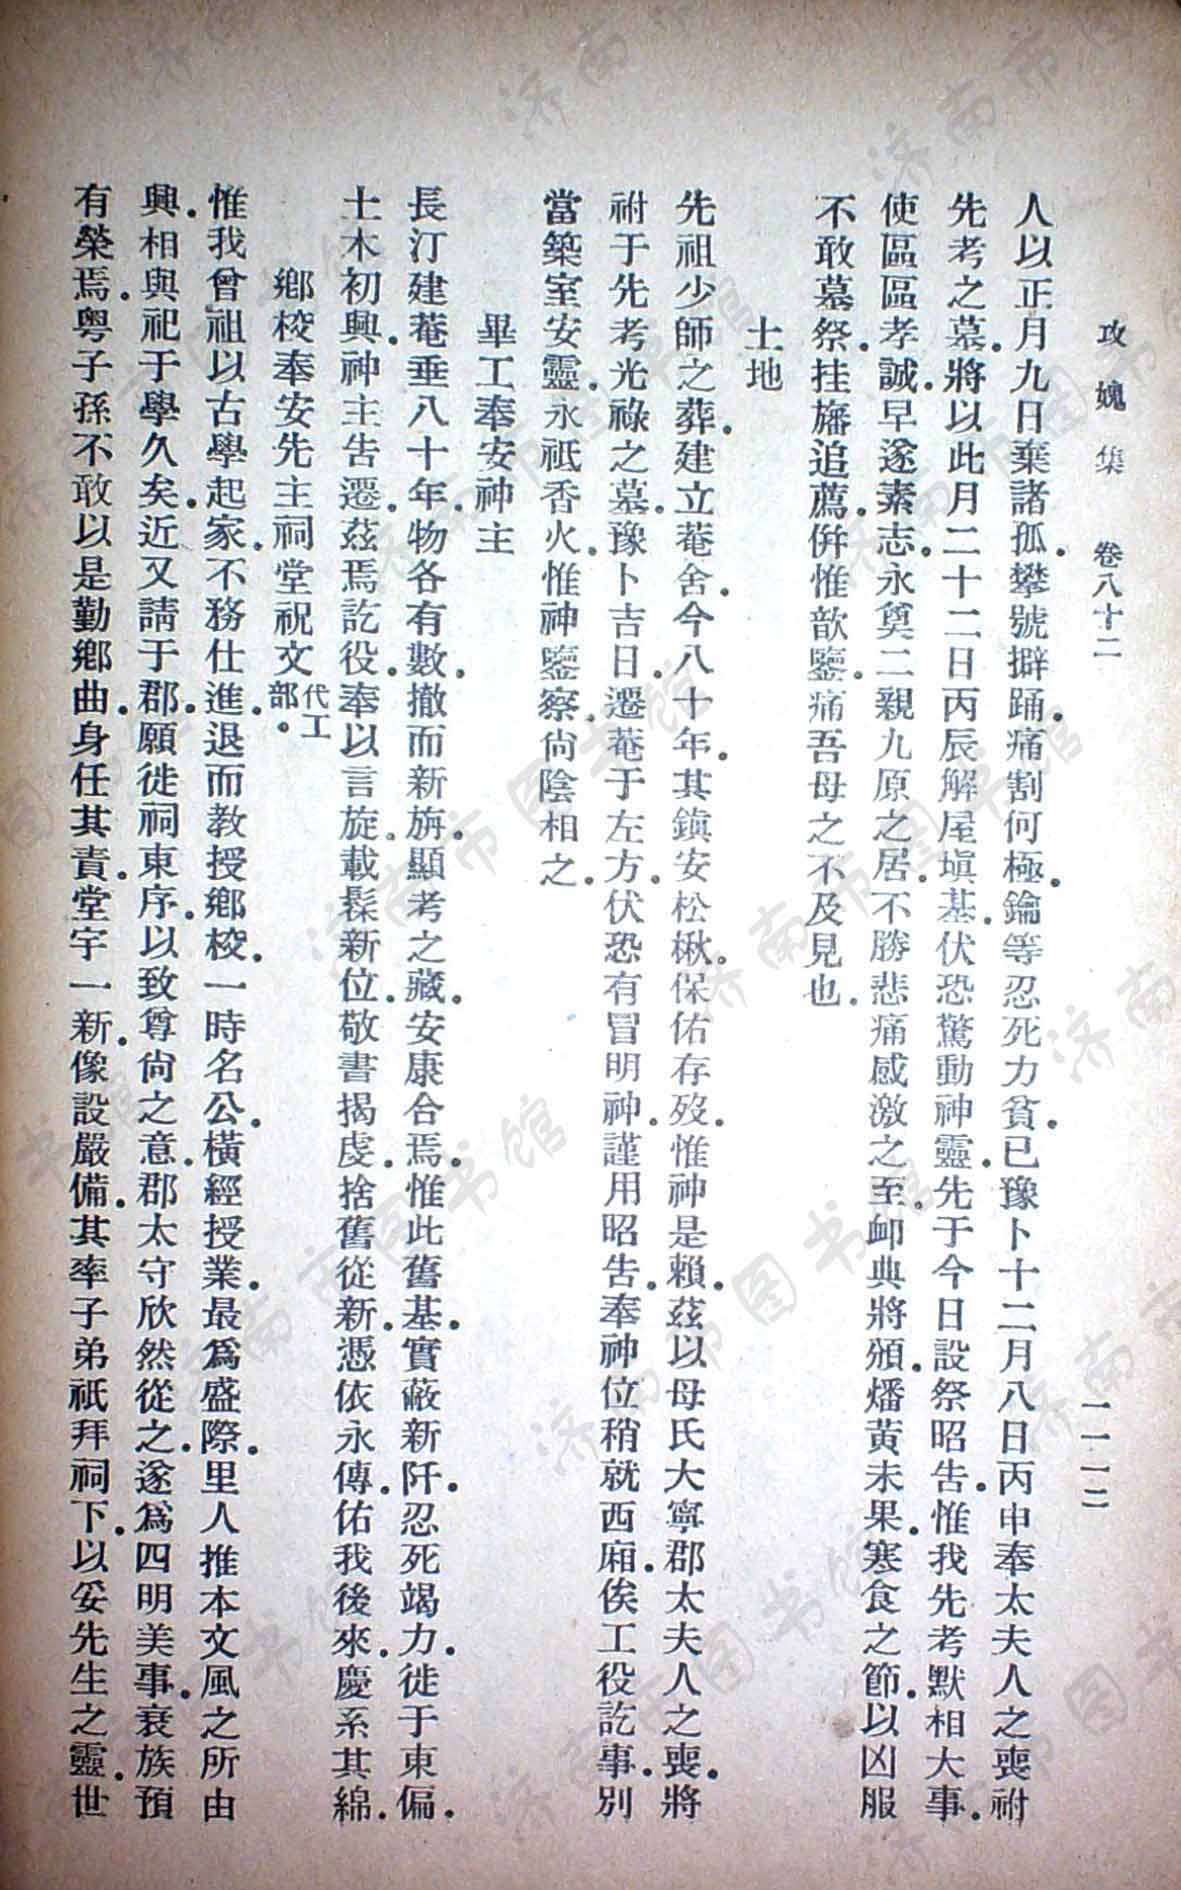 攻媿集 卷八十二 一一一二
人以正月九日棄諸孤.攀號擗踊.痛割何極.鑰等忍死力貧.已豫卜十二月八日丙申奉太夫人之喪祔
先考之墓.將以此月二十二日丙辰解屋塡基.伏恐驚動神靈.先于今日設祭昭告.惟我先考默相大事.
使區區孝誠.早遂素志.永奠二親九原之居.不勝悲痛感激之至.卹典將頒.燔黃未果.寒食之節.以凶服
不敢墓祭.挂旛追薦.倂惟歆鑒.痛吾母之不及見也.
土地
先祖少師之葬.建立菴舍.今八十年.其鎭安松楸.保佑存歿.惟神是賴.茲以母氏大寧郡太夫人之喪.將
祔于先考光祿之墓.豫卜吉日.遷菴于左方.伏恐有冒明神.謹用昭告.奉神位稍就西廂.俟工役訖事.別
當築室安靈.永祗香火.惟神鑒察.尙陰相之.
畢工奉安神主
長汀建菴.垂八十年.物各有數.撤而新旃.顯考之藏.安康合焉.惟此舊基.實蔽新阡.忍死竭力.徙于東偏.
土木初興.神主吿遷.茲焉訖役.奉以言旋.載髹新位.敬書揭虔.捨舊從新.憑依永傳.佑我後來.慶系其綿.
鄕校奉安先主祠堂祝文代工部。
惟我曾祖.以古學起家.不務仕進.退而教授鄕校.一時名公.橫經授業.最爲盛際.里人推本文風之所由
興.相與祀于學久矣.近又請于郡.願徙祠東序.以致尊尙之意.郡太守欣然從之.遂爲四明美事.衰族預
有榮焉.粤子孫不敢以是勤鄕曲.身任其責.堂宇一新.像設嚴備.其率子弟祇拜祠下.以妥先生之靈.世